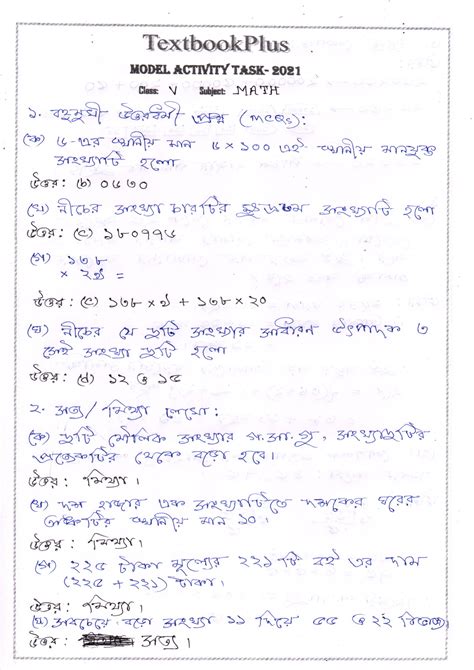 TextbookPlus
MODEL ACTIVITY TASK- 2021
Class: V Subject: MATH
১. বহুমুখী উত্তরধর্মী প্রশ্ন (MCQs):
(ক) ৫-এর স্থানীয় মান ৫ × ১০০ এই স্থানীয় মানযুক্ত
সংখ্যাটি হলো
উত্তর: (b) ০৫৩০
(খ) নীচের সংখ্যা চারটির ক্ষুদ্রতম সংখ্যাটি হলো
উত্তর: (c) ১৮০৭৭৫
(গ) ১৩৮
× ২৯ =
উত্তর: (c) ১৩৮ × ৯ + ১৩৮ × ২০
(ঘ) নীচের যে দুটি সংখ্যার সাধারণ উৎপাদক ৩
সেই সংখ্যা দুটি হলো
উত্তর: (d) ১২ ও ১৫
২. সত্য/মিথ্যা লেখো:
(ক) দুটি মৌলিক সংখ্যার গ.সা.গু, সংখ্যাদুটির
প্রত্যেকটির থেকে বড়ো হবে।
উত্তর: মিথ্যা।
(খ) দশ হাজার এক সংখ্যাটিতে দশকের ঘরের
অঙ্কটির স্থানীয় মান ১০।
উত্তর: মিথ্যা।
(গ) ২২৫ টাকা মূল্যের ২২১ টি বই এর দাম
(২২৫ + ২২১) টাকা।
উত্তর: মিথ্যা।
(ঘ) সবচেয়ে বড়ো সংখ্যা ১১ দিয়ে ৫৫ ও ২২ বিভাজ্য।
উত্তর: সত্য।